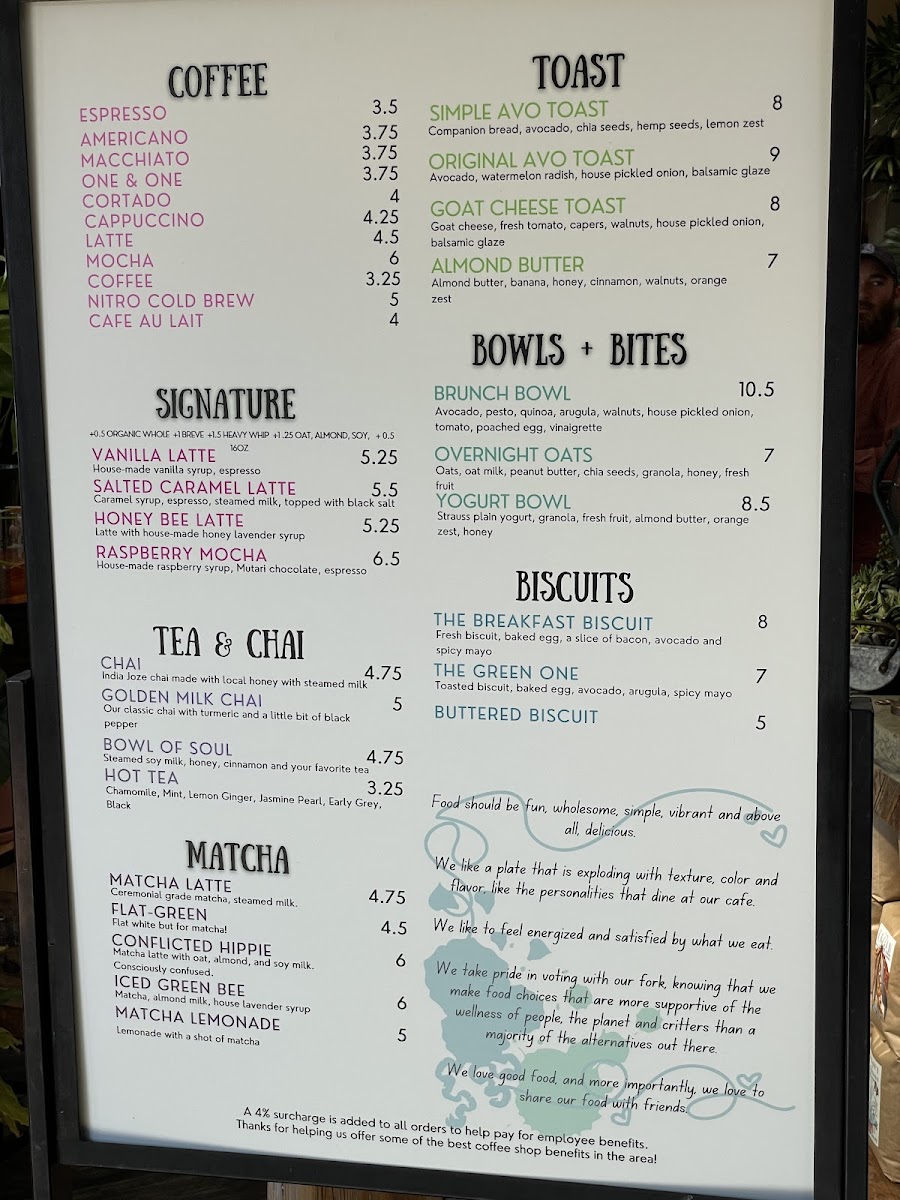 COFFEE
ESPRESSO 3.5
AMERICANO 3.75
MACCHIATO 3.75
ONE & ONE 3.75
CORTADO 4
CAPPUCCINO 4.25
LATTE 4.5
MOCHA 6
COFFEE 3.25
NITRO COLD BREW 5
CAFE AU LAIT 4
SIGNATURE
+0.5 ORGANIC WHOLE +1 BREVE +1.5 HEAVY WHIP +1.25 OAT, ALMOND, SOY, +0.5
16OZ
VANILLA LATTE 5.25
House-made vanilla syrup, espresso
SALTED CARAMEL LATTE 5.5
Caramel syrup, espresso, steamed milk, topped with black salt
HONEY BEE LATTE 5.25
Latte with house-made honey lavender syrup
RASPBERRY MOCHA 6.5
House-made raspberry syrup, Mutari chocolate, espresso
TEA & CHAI
CHAI 4.75
India Joze chai made with local honey with steamed milk
GOLDEN MILK CHAI 5
Our classic chai with turmeric and a little bit of black
pepper
BOWL OF SOUL 4.75
Steamed soy milk, honey, cinnamon and your favorite tea
HOT TEA 3.25
Chamomile, Mint, Lemon Ginger, Jasmine Pearl, Early Grey,
Black
MATCHA
MATCHA LATTE 4.75
Ceremonial grade matcha, steamed milk.
FLAT-GREEN 4.5
Flat white but for matcha!
CONFLICTED HIPPIE 6
Matcha latte with oat, almond, and soy milk.
Consciously confused.
ICED GREEN BEE 6
Matcha, almond milk, house lavender syrup
MATCHA LEMONADE 5
Lemonade with a shot of matcha
TOAST
SIMPLE AVO TOAST 8
Companion bread, avocado, chia seeds, hemp seeds, lemon zest
ORIGINAL AVO TOAST 9
Avocado, watermelon radish, house pickled onion, balsamic glaze
GOAT CHEESE TOAST 8
Goat cheese, fresh tomato, capers, walnuts, house pickled onion,
balsamic glaze
ALMOND BUTTER 7
Almond butter, banana, honey, cinnamon, walnuts, orange
zest
BOWLS + BITES
BRUNCH BOWL 10.5
Avocado, pesto, quinoa, arugula, walnuts, house pickled onion,
tomato, poached egg, vinaigrette
OVERNIGHT OATS 7
Oats, oat milk, peanut butter, chia seeds, granola, honey, fresh
fruit
YOGURT BOWL 8.5
Strauss plain yogurt, granola, fresh fruit, almond butter, orange
zest, honey
BISCUITS
THE BREAKFAST BISCUIT 8
Fresh biscuit, baked egg, a slice of bacon, avocado and
spicy mayo
THE GREEN ONE 7
Toasted biscuit, baked egg, avocado, arugula, spicy mayo
BUTTERED BISCUIT 5
Food should be fun, wholesome, simple, vibrant and above
all, delicious.
We like a plate that is exploding with texture, color and
flavor, like the personalities that dine at our cafe.
We like to feel energized and satisfied by what we eat.
We take pride in voting with our fork, knowing that we
make food choices that are more supportive of the
wellness of people, the planet and critters than a
majority of the alternatives out there.
We love good food, and more importantly, we love to
share our food with friends.
A 4% surcharge is added to all orders to help pay for employee benefits.
Thanks for helping us offer some of the best coffee shop benefits in the area!